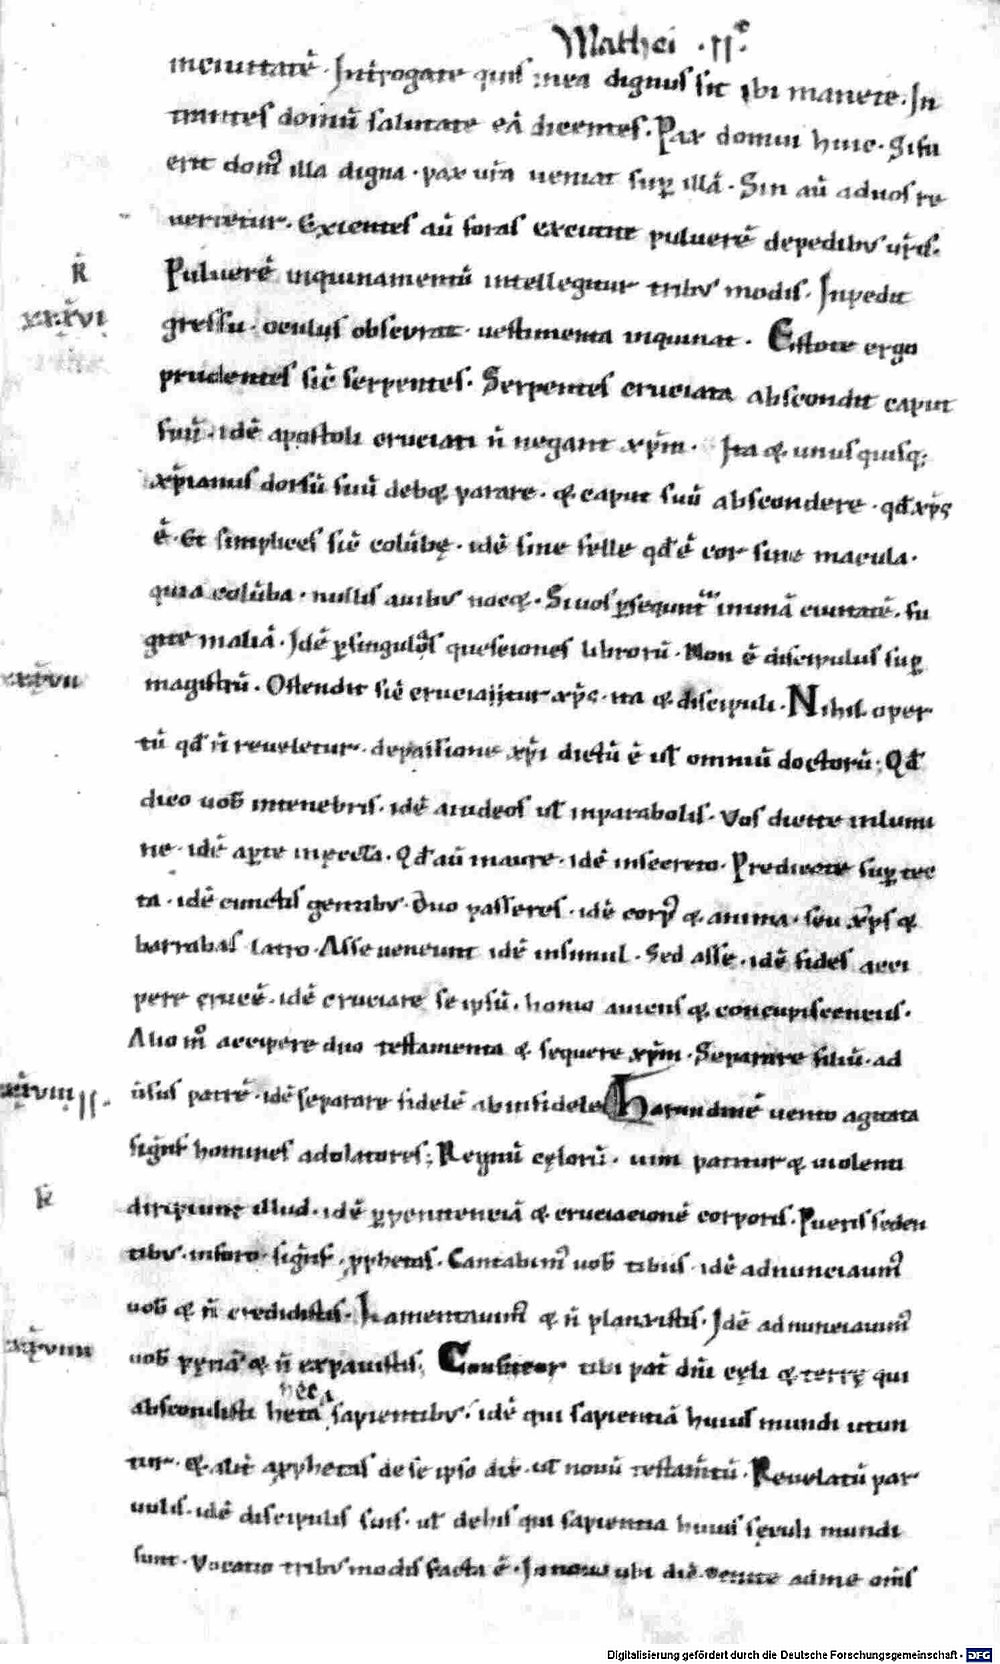 Mathei · II͛
inciuitatē · Int̄rogate quis inea dignus sit ibi manete · In
trantes domū salutate eā dicentes · Pax domui huic · Si fu
erit dom᷒ illa digna · pax ur̄a ueniat sup̱ illā · Sin aū aduos re
uertetur · Exeuntes aū foras excutite puluerē depedibus ur̄is ·
R̄ Puluerē inquinamentū intellegitur tribus modis · Inpedit
xxxvi gressu · oculus obscurat · uestimenta inquinat · Estote ergo
prudentes sic̄ serpentes · Serpentes cruciata abscondit caput
suū · idē apostoli cruciati n̄ negant xp̄m · Ita & unusquisq;
xp̄ianus dorsū suū deb& parare · & caput suū abscondere · qđ xp̄s
ē · Et simplices sic̄ colūbę · idē sine felle qđ ē cor sine macula ·
quia colūba · nullis auibus noc& · Si uos p̱sequunt̄ inunā ciuitatē · fu
gite inaliā · Idē p̱singulos questiones librorū · Non ē discipulus sup̱
xxxvii magistrū · Ostendit sic̄ cruciatur xp̄s · ita & discipuli · Nihil oper
tū qđ n̄ reueletur · depassione xp̄i dictū ē uł omniū doctorū ; Qđ
dico uob̄ intenebris · idē aiudeos uł inparabolis · Vos dicite inlumi
ne · idē ap̱te inęccła · Qđ aū inaure · idē insecreto · Predicate sup̱ tec
ta · idē cunctis gentibus · Duo passeres · idē corp᷒ & anima · seu xp̄s &
barrabas latro · Asse ueneunt idē insimul · Sed asse · idē fides acci
pere crucē · idē cruciare se ipsū · homo auiciis & concupiscenciis ·
Alio m̊ accipere duo testamenta & sequere xp̄m · Separare filiū · ad
xxxviii II · ūsus patrē · idē separare fidelē abinfidele Harundinē uento agitata
sign̄t homines adolatores ; Regnū cęlorū · uim patitur & uiolenti
R̄ diripiunt illud · idē p̱penitenciā & cruciacionē corporis · Pueris seden
tibus · inforo · sign̄t · p̱phetas · Cantabim᷒ uob̄ tibiis · idē adnunciauim᷒
uob̄ & n̄ credidistis · Lamentauim᷒ & n̄ planxistis · Idē adnunciauim᷒
xxxviiii uob̄ pęnā & n̄ expauistis ; Confiteor tibi pat̄ dn̄i cęli & terrę qui
abscondisti hec a sapientibus · idē qui sapientiā huius mundi utun
tur · & alit̄ ap̱phetas de se ipso dix̄ · uł nouū testam̄tū · Reuelatū par
uulis · idē discipulis suis · uł dehis qui sapientia huius sęculi mundi
sunt · Vocatio tribus modis facta ē · ubi dix̄ · uenite adme om̄s
Digitalisierung gefördert durch die Deutsche Forschungsgemeinschaft - DFG